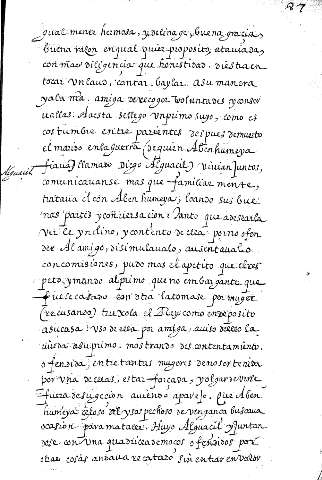 87
gualmente hermosa, y de linage, buena gracia,
buena razon en qual quier proposito, ataviada,
con mas diligencia que honestidad. diestra en
tocar un laud, cantar, baylar a su manera
y a la nra. amiga de recoger voluntades y conser
vallas. A esta se llego un primo suyo, como es
costumbre entre parientes despues de muerto
el marido en la guerra (de quien Aben humeya
fiava) llamado Diego Alguacil) vivian Juntos,
Alguacil
comunicavanse mas que familiarmente,
tratava el con Aben humeya, loando sus bue
nas partes y conversacion: tanto que a desearla
ver le ynclino, y contento de ella por no ofen
der al amigo, disimulavalo, ausentavalo
con comisiones, pudo mas el apetito que el res
peto, y mando al primo que no embargante que
fuese casado con otra la tomase por muger
(recusando) truxola el Rey como en deposito
a su casa: Uso de ella por amiga, aviso de ello la
viuda a su primo. mostrando descontentamiento.
ofendida, entre tantas mugeres de no ser tenida
por una de ellas, estar forçada, y holgar de verse
fuera de sugecion aviendo aparejo. Que Aben
humeya celoso del y sospechoso de vengança buscava
ocasion para matalle. Huyo Alguacil y Juntan
dose con una quadrilla de moços ofendidos por
otras cosas andava recatado sin entrar en Valor